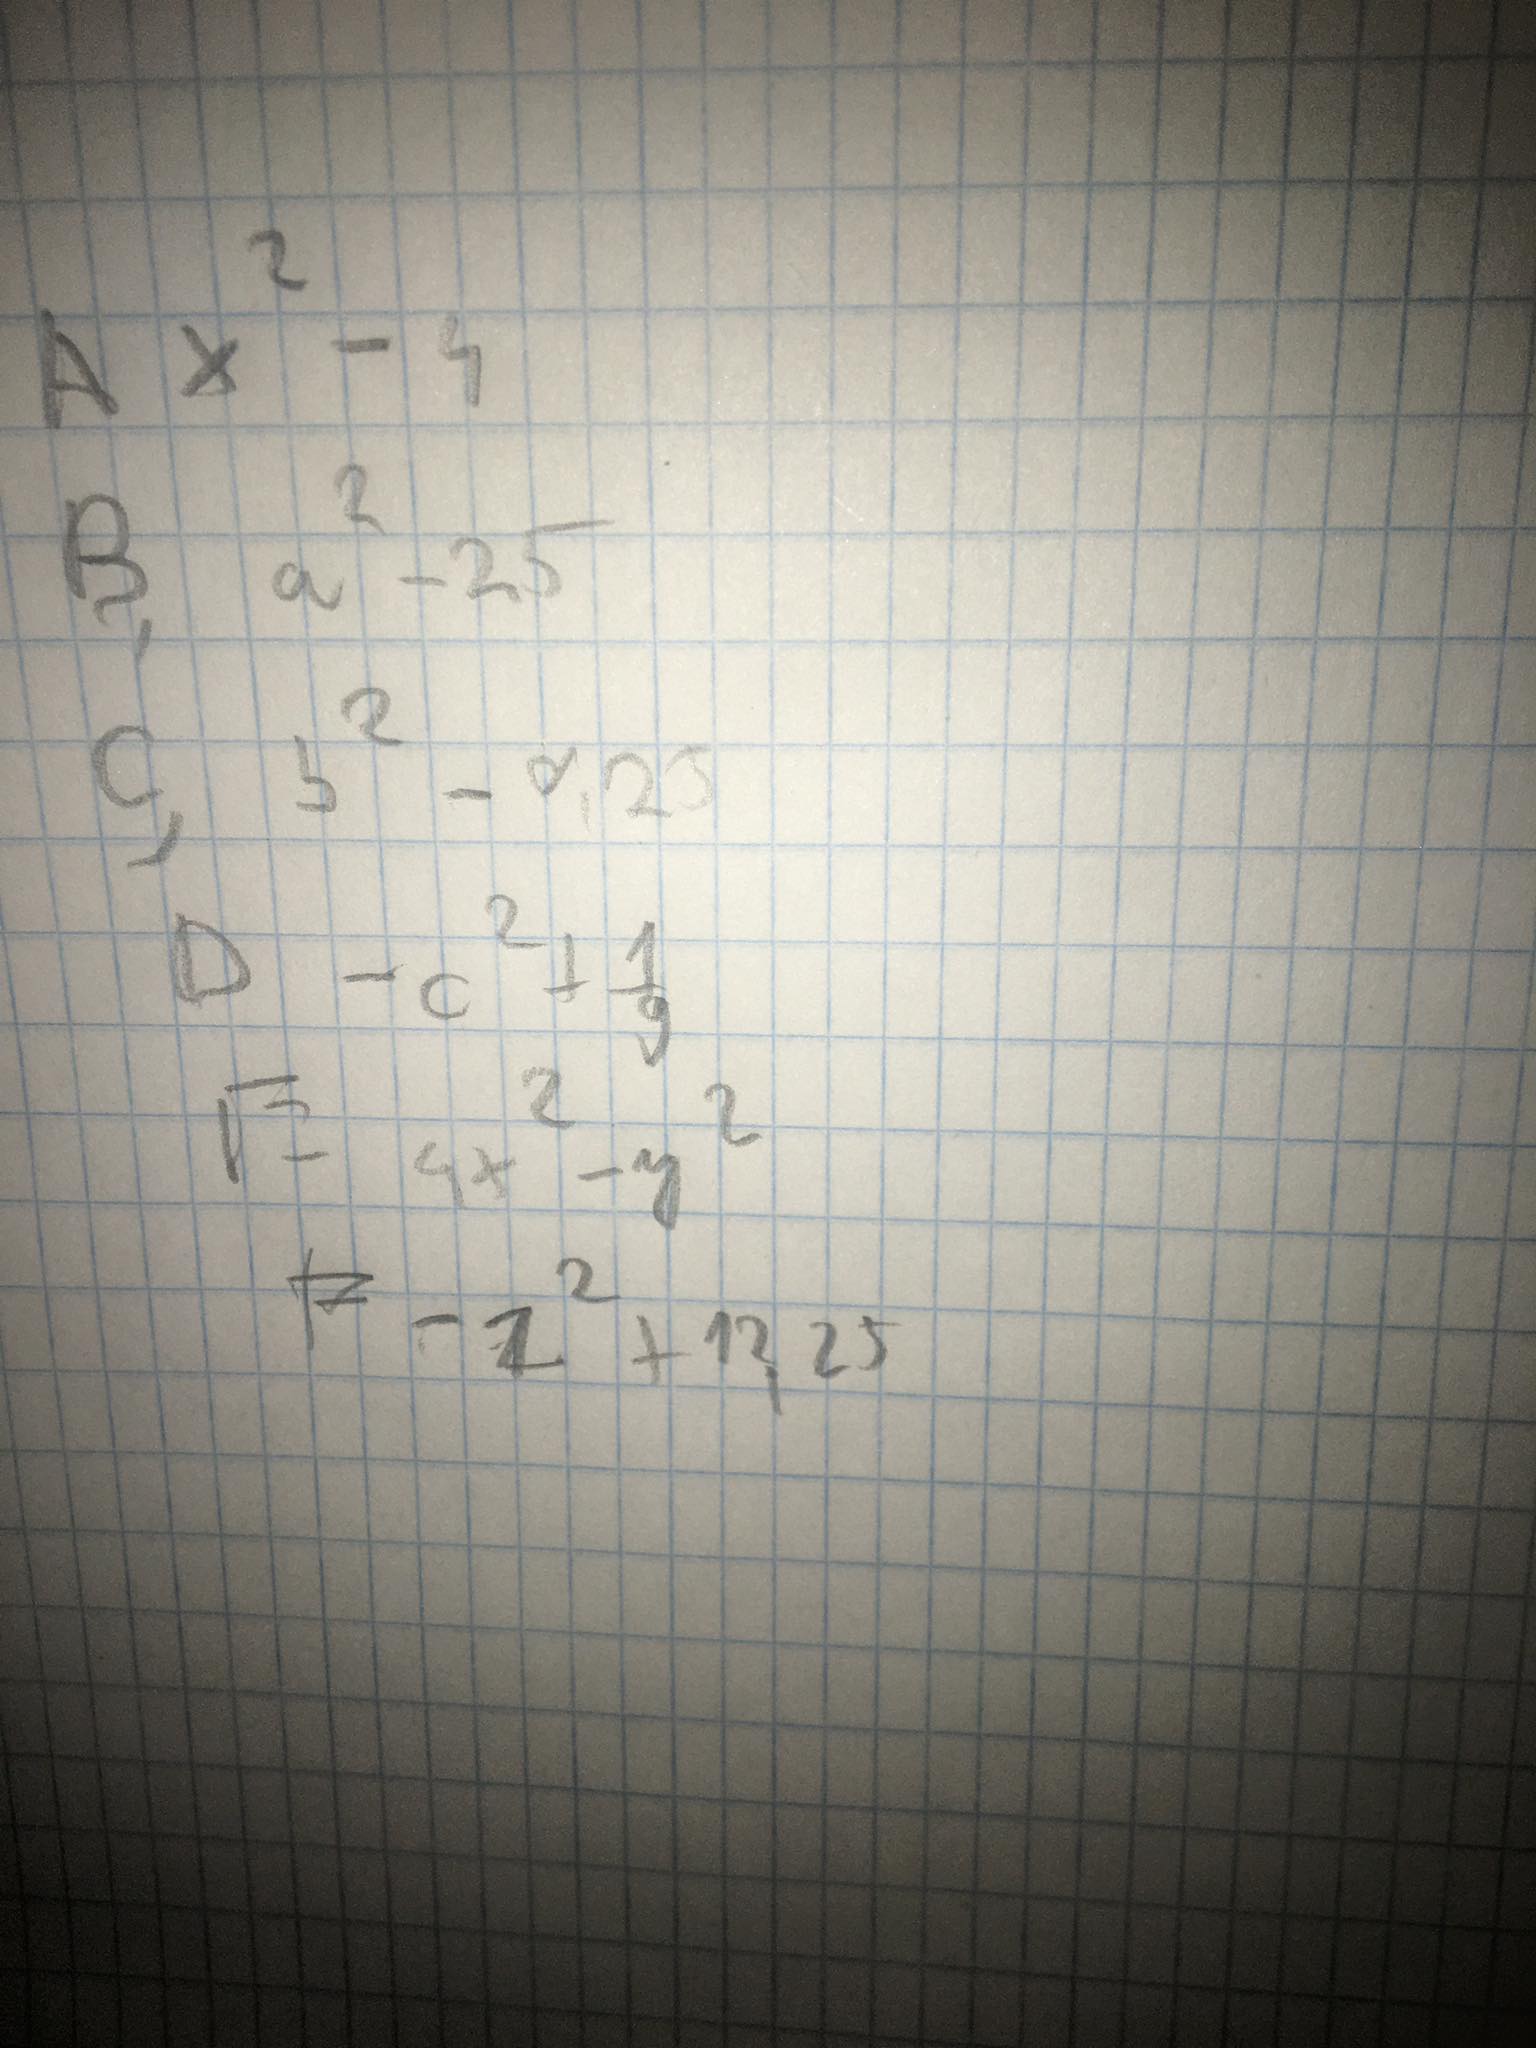 A x² - 4
B, a² - 25
C, b² - 0,25
D -c² + 1/9
E 4x² - y²
F - z² + 12,25